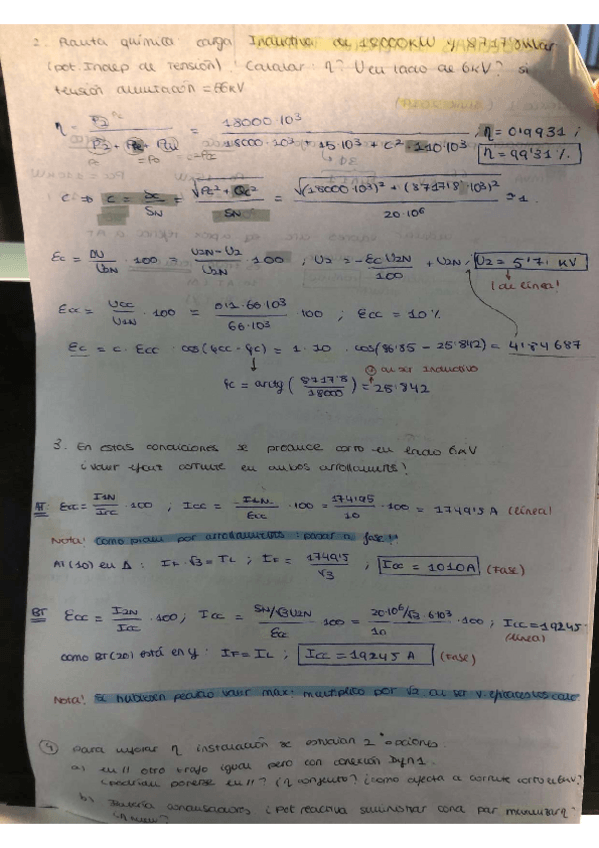 2. Planta química carga Inductiva de 18000KW y 8717'8kVar
(pot. Indep de tensión) ! Calcular: η? U en lado de 6kV? si
tensión alimentación = 66kV
η = P2 / (P2 + P0 + Pcu) = 18000·10³ / (18000·10³ + 15·10³ + C²·110·10³) ; η = 0'9931 ;
η = 99'31 %.
C ⇒ C = Sc / SN = √(Pc² + Qc²) / SN = √((18000·10³)² + (8717'8·10³)²) / 20·10⁶ ≈ 1.
Ec = DU / U2N · 100 = U2N - U2 / U2N · 100 ; U2 = -Ec U2N / 100 + U2N ; U2 = 5'71 KV
! de línea!
Ecc = Ucc / U1N · 100 = 0'1·66·10³ / 66·10³ · 100 ; Ecc = 10 %
Ec = C · Ecc · cos(φcc - φc) = 1 · 10 · cos(86'85 - 25'842) = 4'84687
⊕ al ser inductivo
φc = arctg (8717'8 / 18000) = 25'842
3. En estas condiciones se produce corto en lado 6KV
¿valor efcaz corriente en ambos arrollamientos?
AT: Ecc = I1N / Icc · 100 ; Icc = I1N / Ecc · 100 = 174'95 / 10 · 100 = 1749'5 A (línea)
Nota! como piden por arrollamientos : pasar a fase!!
AT (10) en Δ : IF · √3 = IL ; IF = 1749'5 / √3 ; Icc = 1010A (Fase)
BT Ecc = I2N / Icc · 100 ; Icc = SN/√3U2N / Ecc · 100 = 20·10⁶/√3·6·10³ / 10 · 100 ; Icc = 19245
(línea)
como BT(20) está en Y : IF = IL ; Icc = 19245 A (Fase)
Nota! Si hubiesen pedido valor max: multiplico por √2 al ser v. eficaces los calc
4 Para mejorar η instalación se estudian 2 opciones.
a) en // otro trafo igual pero con conexión Dyn1.
¿podrían ponerse en //? (η conjunto? ¿como afecta a corriente corto en 6KV?
b) Batería condensadores ¿Pot reactiva suministrar cond. par